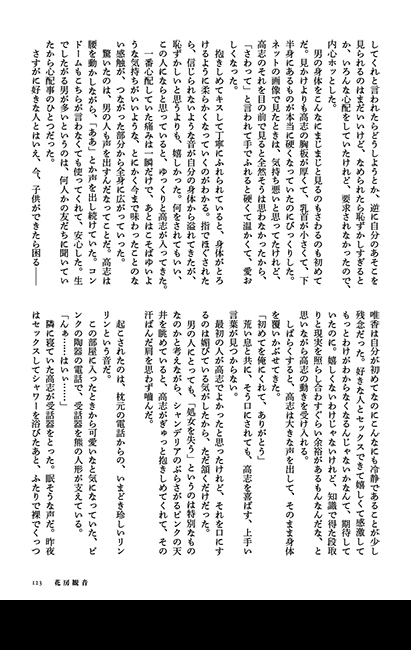 してくれと言われたらどうしようとか、逆に自分のあそこを
見られるのはまだいいけど、なめられたら恥ずかしすぎると
か、いろんな心配をしていたけれど、要求されなかったので、
内心ホッとした。
男の身体をこんなにまじまじと見るのもさわるのも初めて
だ。見かけよりも高志の胸板が厚くて、乳首が小さくて、下
半身にあるものが本当に硬くなっていたのにびっくりした。
ネットの画像で見たときは、気持ち悪いと思ってたけれど、
高志のそれを目の前で見ると全然そうは思わなかったから、
「さわって」と言われて手でふれると硬くて温かくて、愛お
しくなった。
抱きしめてキスして丁寧にふれられていると、身体がとろ
けるように柔らかくなっていくのがわかる。指でほぐされた
ら、信じられないような音が自分の身体から溢れてきたが、
恥ずかしいと思うよりも、嬉しかった。何をされてもいい、
この人にならと思っていると、ゆっくりと高志が入ってきた。
一番心配していた痛みは一瞬だけで、あとはこそばゆいよ
うな気持ちがいいような、とにかく今まで味わったことのな
い感触が、つながった部分から全身に広がっていった。
驚いたのは、男の人も声を出すんだなってことだ。高志は
腰を動かしながら、「ああ」とか声を出し続けていた。コン
ドームもこちらが言わなくても使ってくれて、安心した。生
でしたがる男が多いというのは、何人かの友だちに聞いてい
たから心配事のひとつだった。
さすがに好きな人とはいえ、今、子供ができたら困る――
唯香は自分が初めてなのにこんなにも冷静であることが少し
残念だった。好きな人とセックスできて嬉しくて感激して
もっとわけがわからなくなるんじゃないかなんて、期待して
いたのに。嬉しくないわけじゃないけれど、知識で得た段取
りと現実を照らし合わすぐらい余裕があるもんなんだな、と
思いながら高志の動きを受け入れる。
しばらくすると、高志は大きな声を出して、そのまま身体
を覆いかぶせてきた。
「初めてを俺にくれて、ありがとう」
荒い息と共に、そう口にされても、高志を喜ばす、上手い
言葉が見つからない。
最初の人が高志でよかったと思ったけれど、それを口にす
るのは媚びている気がしたから、ただ頷くだけだった。
男の人にとっても、「処女を失う」というのは特別なもの
なのかと考えながら、シャンデリアのぶらさがるピンクの天
井を眺めていると、高志がぎゅっと抱きしめてくれて、その
汗ばんだ肩を思わず嚙んだ。
起こされたのは、枕元の電話からの、いまどき珍しいリン
リンという音だ。
この部屋に入ったときから可愛いなと気になっていた、ピ
ンクの陶器の電話で、受話器を熊の人形が支えている。
「んぁ……はい……」
隣に寝ていた高志が受話器をとった。眠そうな声だ。昨夜
はセックスしてシャワーを浴びたあと、ふたりで裸でくっつ
113 花房観音